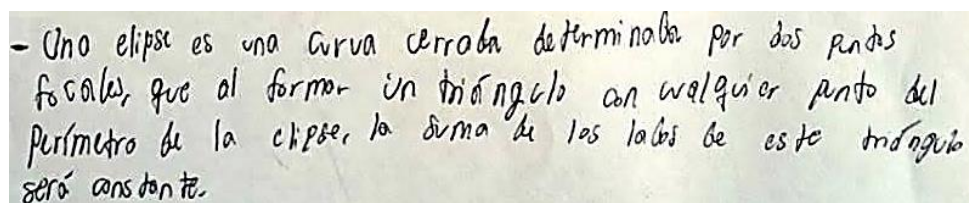 - Una elipse es una curva cerrada determinada por dos puntos
focales, que al formar un triángulo con cualquier punto del
perímetro de la elipse, la suma de los lados de este triángulo
será constante.